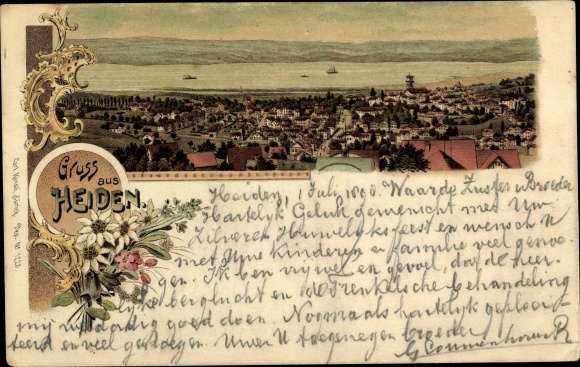 Gruss
aus
HEIDEN.
Heiden, 1 Juli Waarde Zuster & Broeder
Hartelyk Geluk gewenscht met Uw
Zilveren Huwelyksfeest en wensch U
met Uwe Kinderen en familie veel genoe-
gen. Ik ben vry wel en gevoel, dat de heer-
lyke berglucht en behandeling
my weldadig goed doen Nogmaals hartelyk gefelici-
teerd en veel genoegen. Uwen U toegenegen broeder